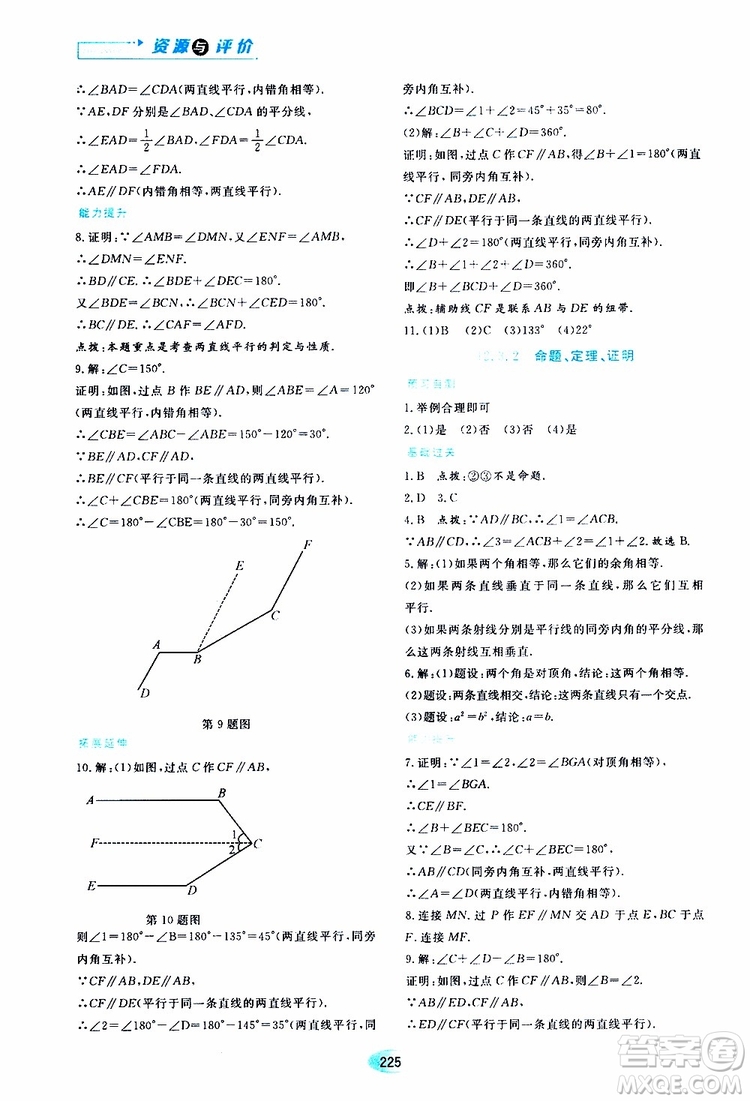 资源与评价
∴∠BAD=∠CDA(两直线平行,内错角相等).
∵AE,DF 分别是∠BAD、∠CDA 的平分线,
∴∠EAD=1/2∠BAD,∠FDA=1/2∠CDA.
∴∠EAD=∠FDA.
∴AE∥DF(内错角相等,两直线平行).
能力提升
8.证明:∵∠AMB=∠DMN,又∠ENF=∠AMB,
∴∠DMN=∠ENF.
∴BD∥CE.∴∠BDE+∠DEC=180°.
又∠BDE=∠BCN,∴∠BCN+∠CED=180°.
∴BC∥DE.∴∠CAF=∠AFD.
点拨:本题重点是考查两直线平行的判定与性质.
9.解:∠C=150°.
证明:如图,过点 B 作 BE∥AD,则∠ABE=∠A=120°
(两直线平行,内错角相等).
∴∠CBE=∠ABC-∠ABE=150°-120°=30°.
∵BE∥AD,CF∥AD,
∴BE∥CF(平行于同一条直线的两直线平行).
∴∠C+∠CBE=180°(两直线平行,同旁内角互补).
∴∠C=180°-∠CBE=180°-30°=150°.
F
E
C
A
B
D
第 9 题图
拓展延伸
10.解:(1)如图,过点 C 作 CF∥AB,
A
B
1
F
2
C
E
D
第 10 题图
则∠1=180°-∠B=180°-135°=45°(两直线平行,同旁
内角互补).
∵CF∥AB,DE∥AB,
∴CF∥DE(平行于同一条直线的两直线平行).
∴∠2=180°-∠D=180°-145°=35°(两直线平行,同
旁内角互补).
∴∠BCD=∠1+∠2=45°+35°=80°.
(2)解:∠B+∠C+∠D=360°.
证明:如图,过点 C 作 CF∥AB,得∠B+∠1=180°(两
直线平行,同旁内角互补).
∵CF∥AB,DE∥AB,
∴CF∥DE(平行于同一条直线的两直线平行).
∴∠D+∠2=180°(两直线平行,同旁内角互补).
∴∠B+∠1+∠2+∠D=360°.
即∠B+∠C+∠D=360°.
点拨:辅助线 CF 是联系 AB 与 DE 的纽带.
11.(1)B (2)C (3)133° (4)22°
命题、定理、证明
预习自测
1.举例合理即可
2.(1)是 (2)否 (3)否 (4)是
基础过关
1.B 点拨:②③不是命题.
2.D 3.C
4.B 点拨:∵AD∥BC,∴∠1=∠ACB.
∵AB∥CD,∴∠3=∠2=∠ACB.故选 B.
5.解:(1)如果两个角相等,那么它们的余角相等.
(2)如果两条直线垂直于同一条直线,那么它们互相
平行.
(3)如果两条射线分别是平行线的同旁内角的平分线,那
么这两条射线互相垂直.
6.解:(1)题设:两个角是对顶角,结论:这两个角相等.
(2)题设:两条直线相交,结论:这两条直线只有一个交点.
(3)题设:a²=b²,结论:a=b.
能力提升
7.证明:∵∠1=∠2,∠2=∠BGA(对顶角相等),
∴∠1=∠BGA.
∴CE∥BF.
∴∠B+∠BEC=180°.
又∵∠B=∠C,∴∠C+∠BEC=180°.
∴AB∥CD(同旁内角互补,两直线平行).
∴∠A=∠D(两直线平行,内错角相等).
8.连接 MN.过 P 作 EF∥MN 交 AD 于点 E,交 BC 于点
F.连接 MF.
9.解:∠C+∠D-∠B=180°.
证明:如图,过点 C 作 CF∥AB,则∠B=∠2.
∵AB∥ED,CF∥AB,
∴ED∥CF(平行于同一条直线的两直线平行).
225
答案圈
MXQE.COM